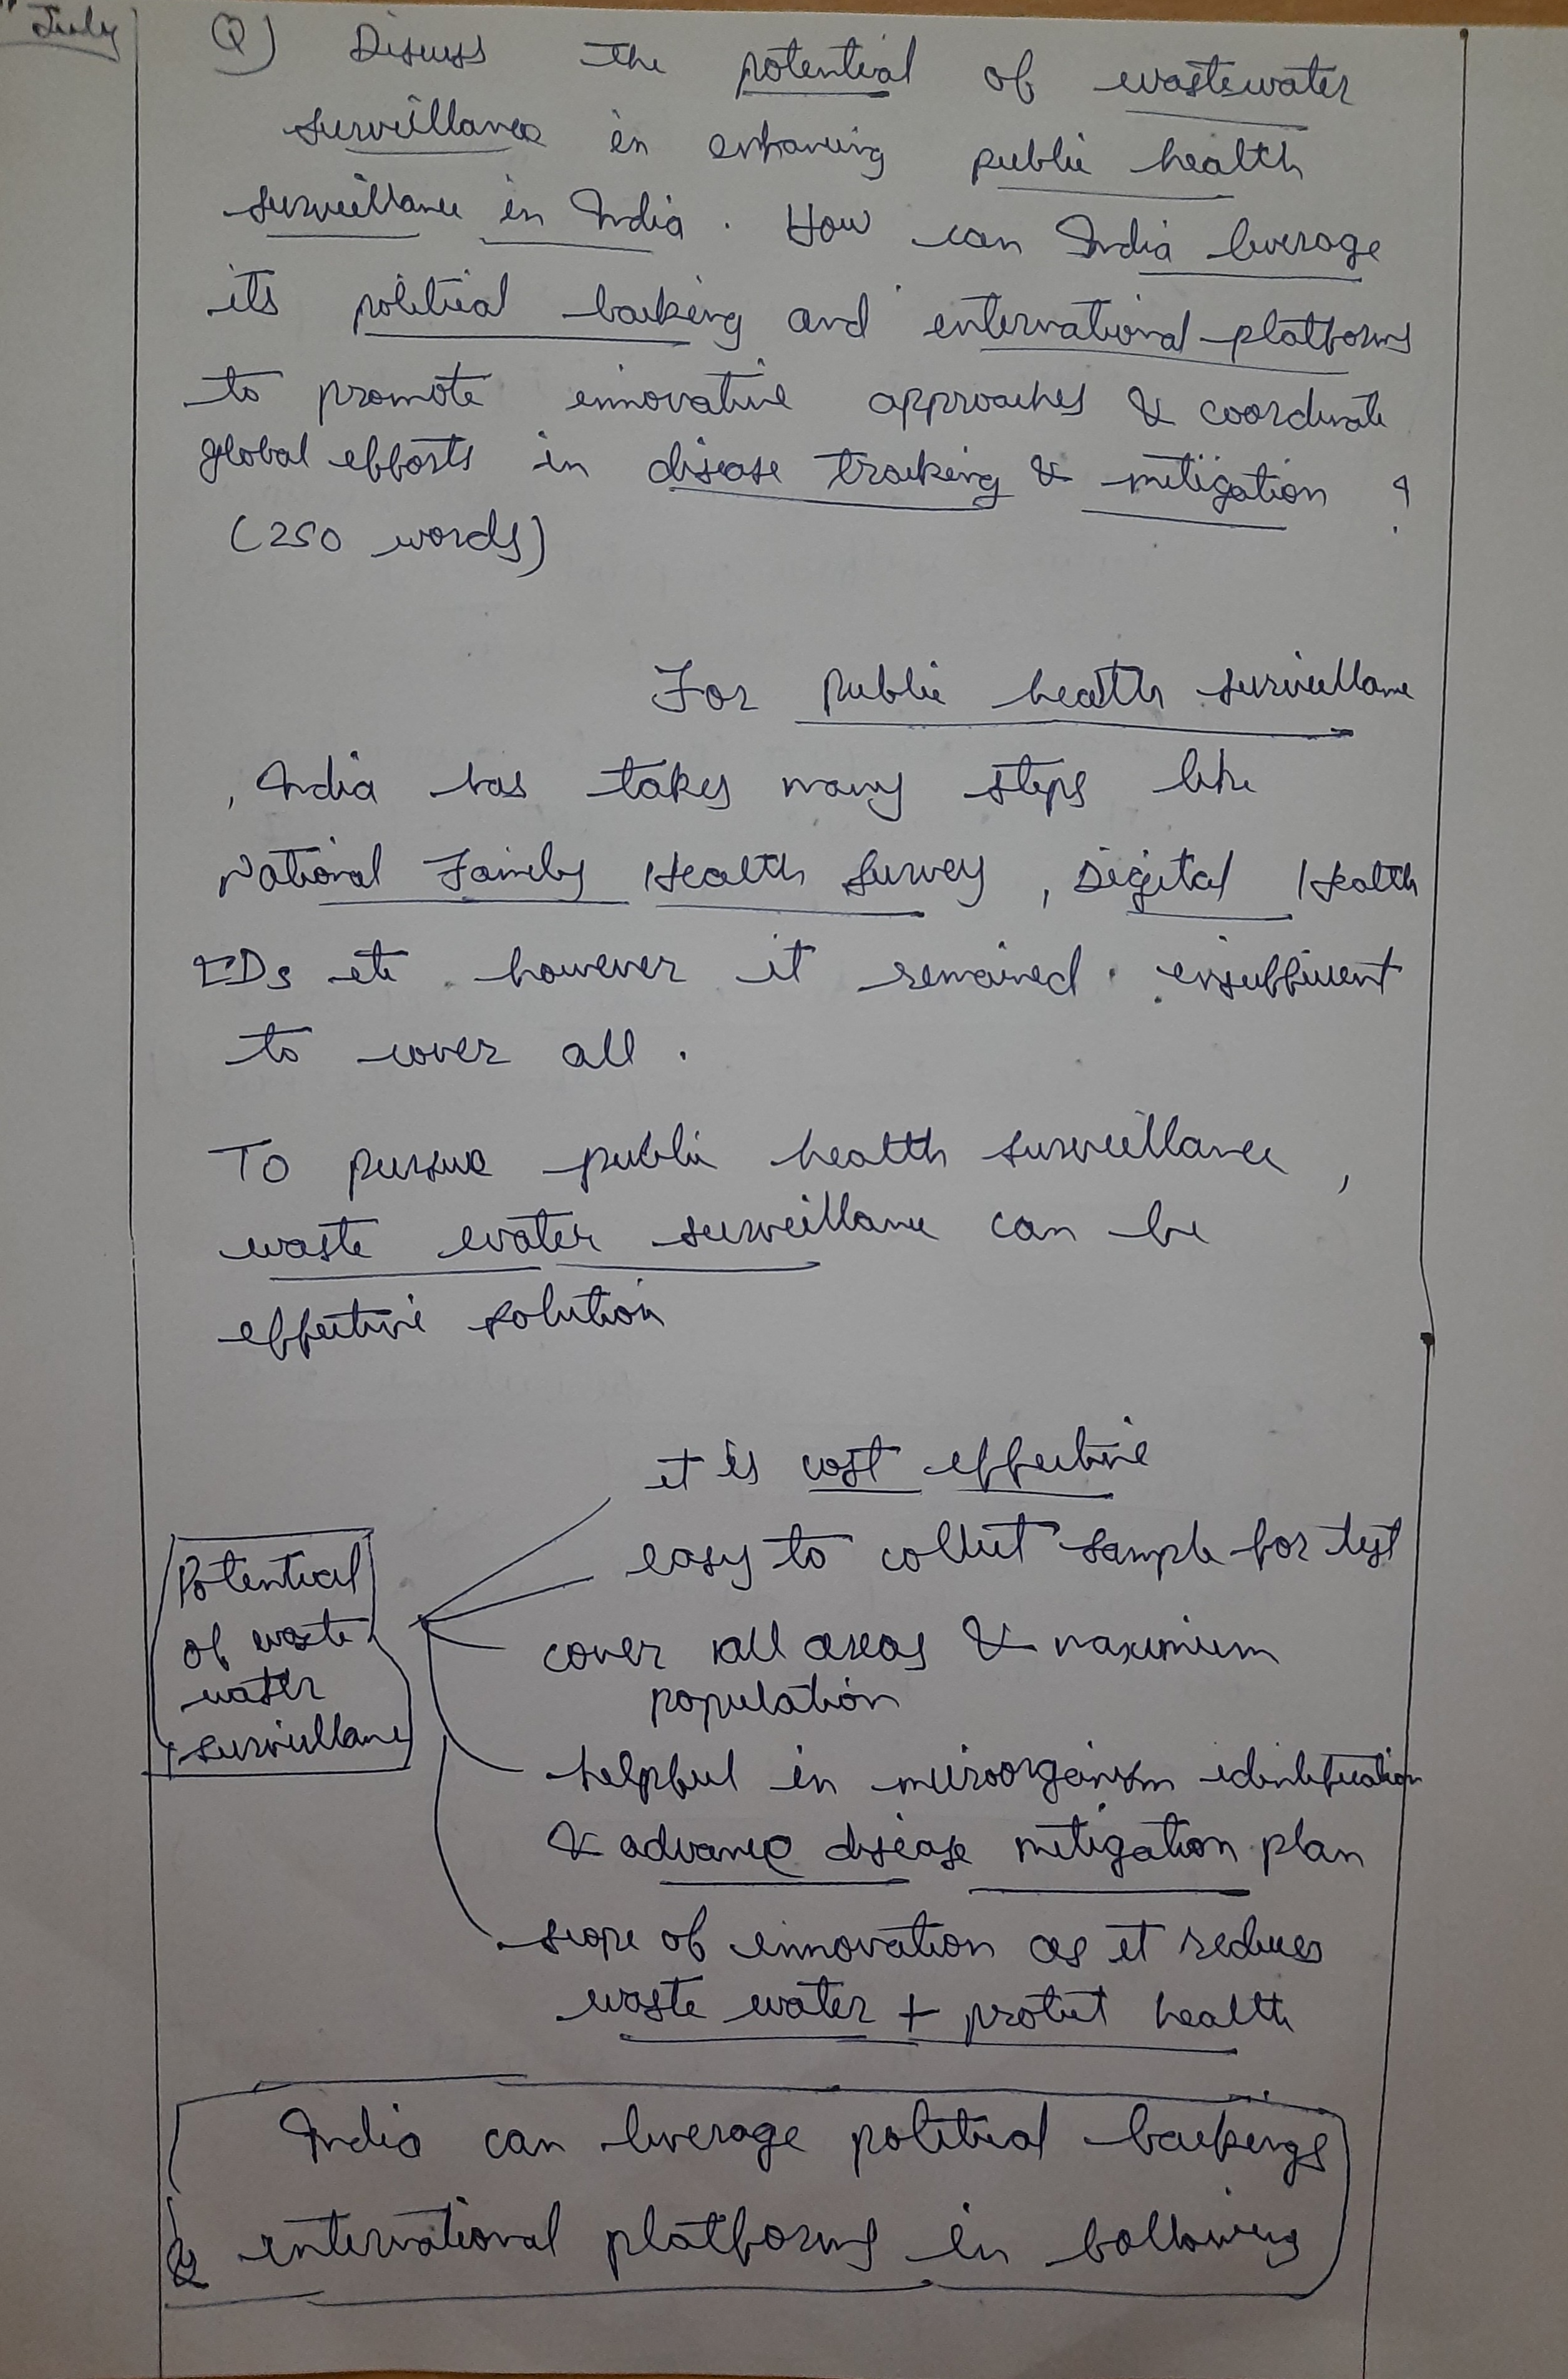 July
Q) Discuss the potential of wastewater
surveillance in enhancing public health
surveillance in India. How can India leverage
its political backing and international platforms
to promote innovative approaches & coordinate
global efforts in disease tracking & mitigation ?
(250 words)
For public health surveillance
, India has takes many steps like
National Family Health Survey, Digital Health
IDs etc. however it remained insufficient
to cover all.
To pursue public health surveillance,
waste water surveillance can be
effective solution
it is cost effective
easy to collect sample for test
cover all areas & maximum
population
helpful in microorganism identification
& advance disease mitigation plan
scope of innovation as it reduces
waste water + protect health
Potential
of waste
water
surveillance
India can leverage political backings
& international platforms in following